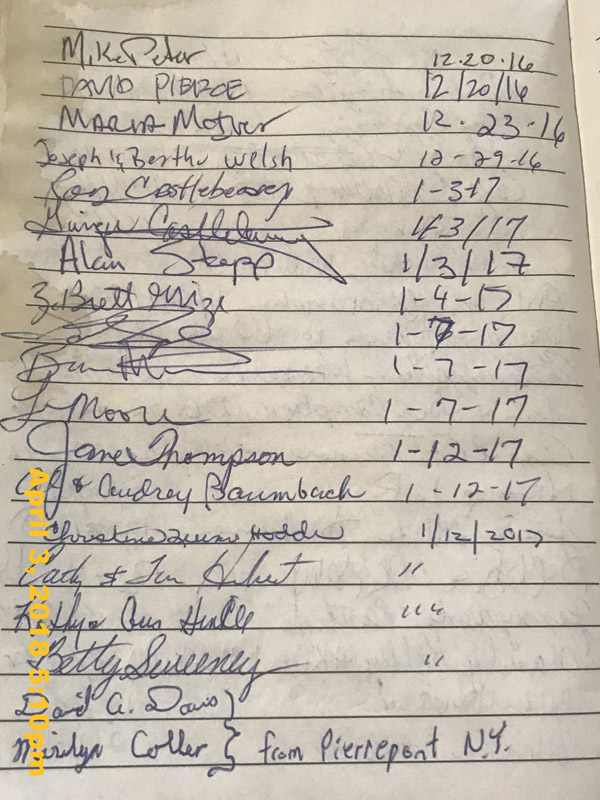 Mike Peter 12.20.16
DAVID PIERCE 12/20/16
MARIA McIver 12.23.16
Joseph & Bertha Welsh 12-29-16
Ron Castleberry 1-3-17
Castleberry 1/3/17
Alan Stepp 1/3/17
Brett Mize 1-4-17
1-7-17
1-7-17
Moore 1-7-17
Jane Thompson 1-12-17
& Audrey Baumbach 1-12-17
Christine Hodde 1/12/2017
& Jan "
Hinkle "
Betty Sweeney "
David A. Davis }
Marilyn Coller } from Pierrepont N.Y.
April 3, 2018 5:10pm